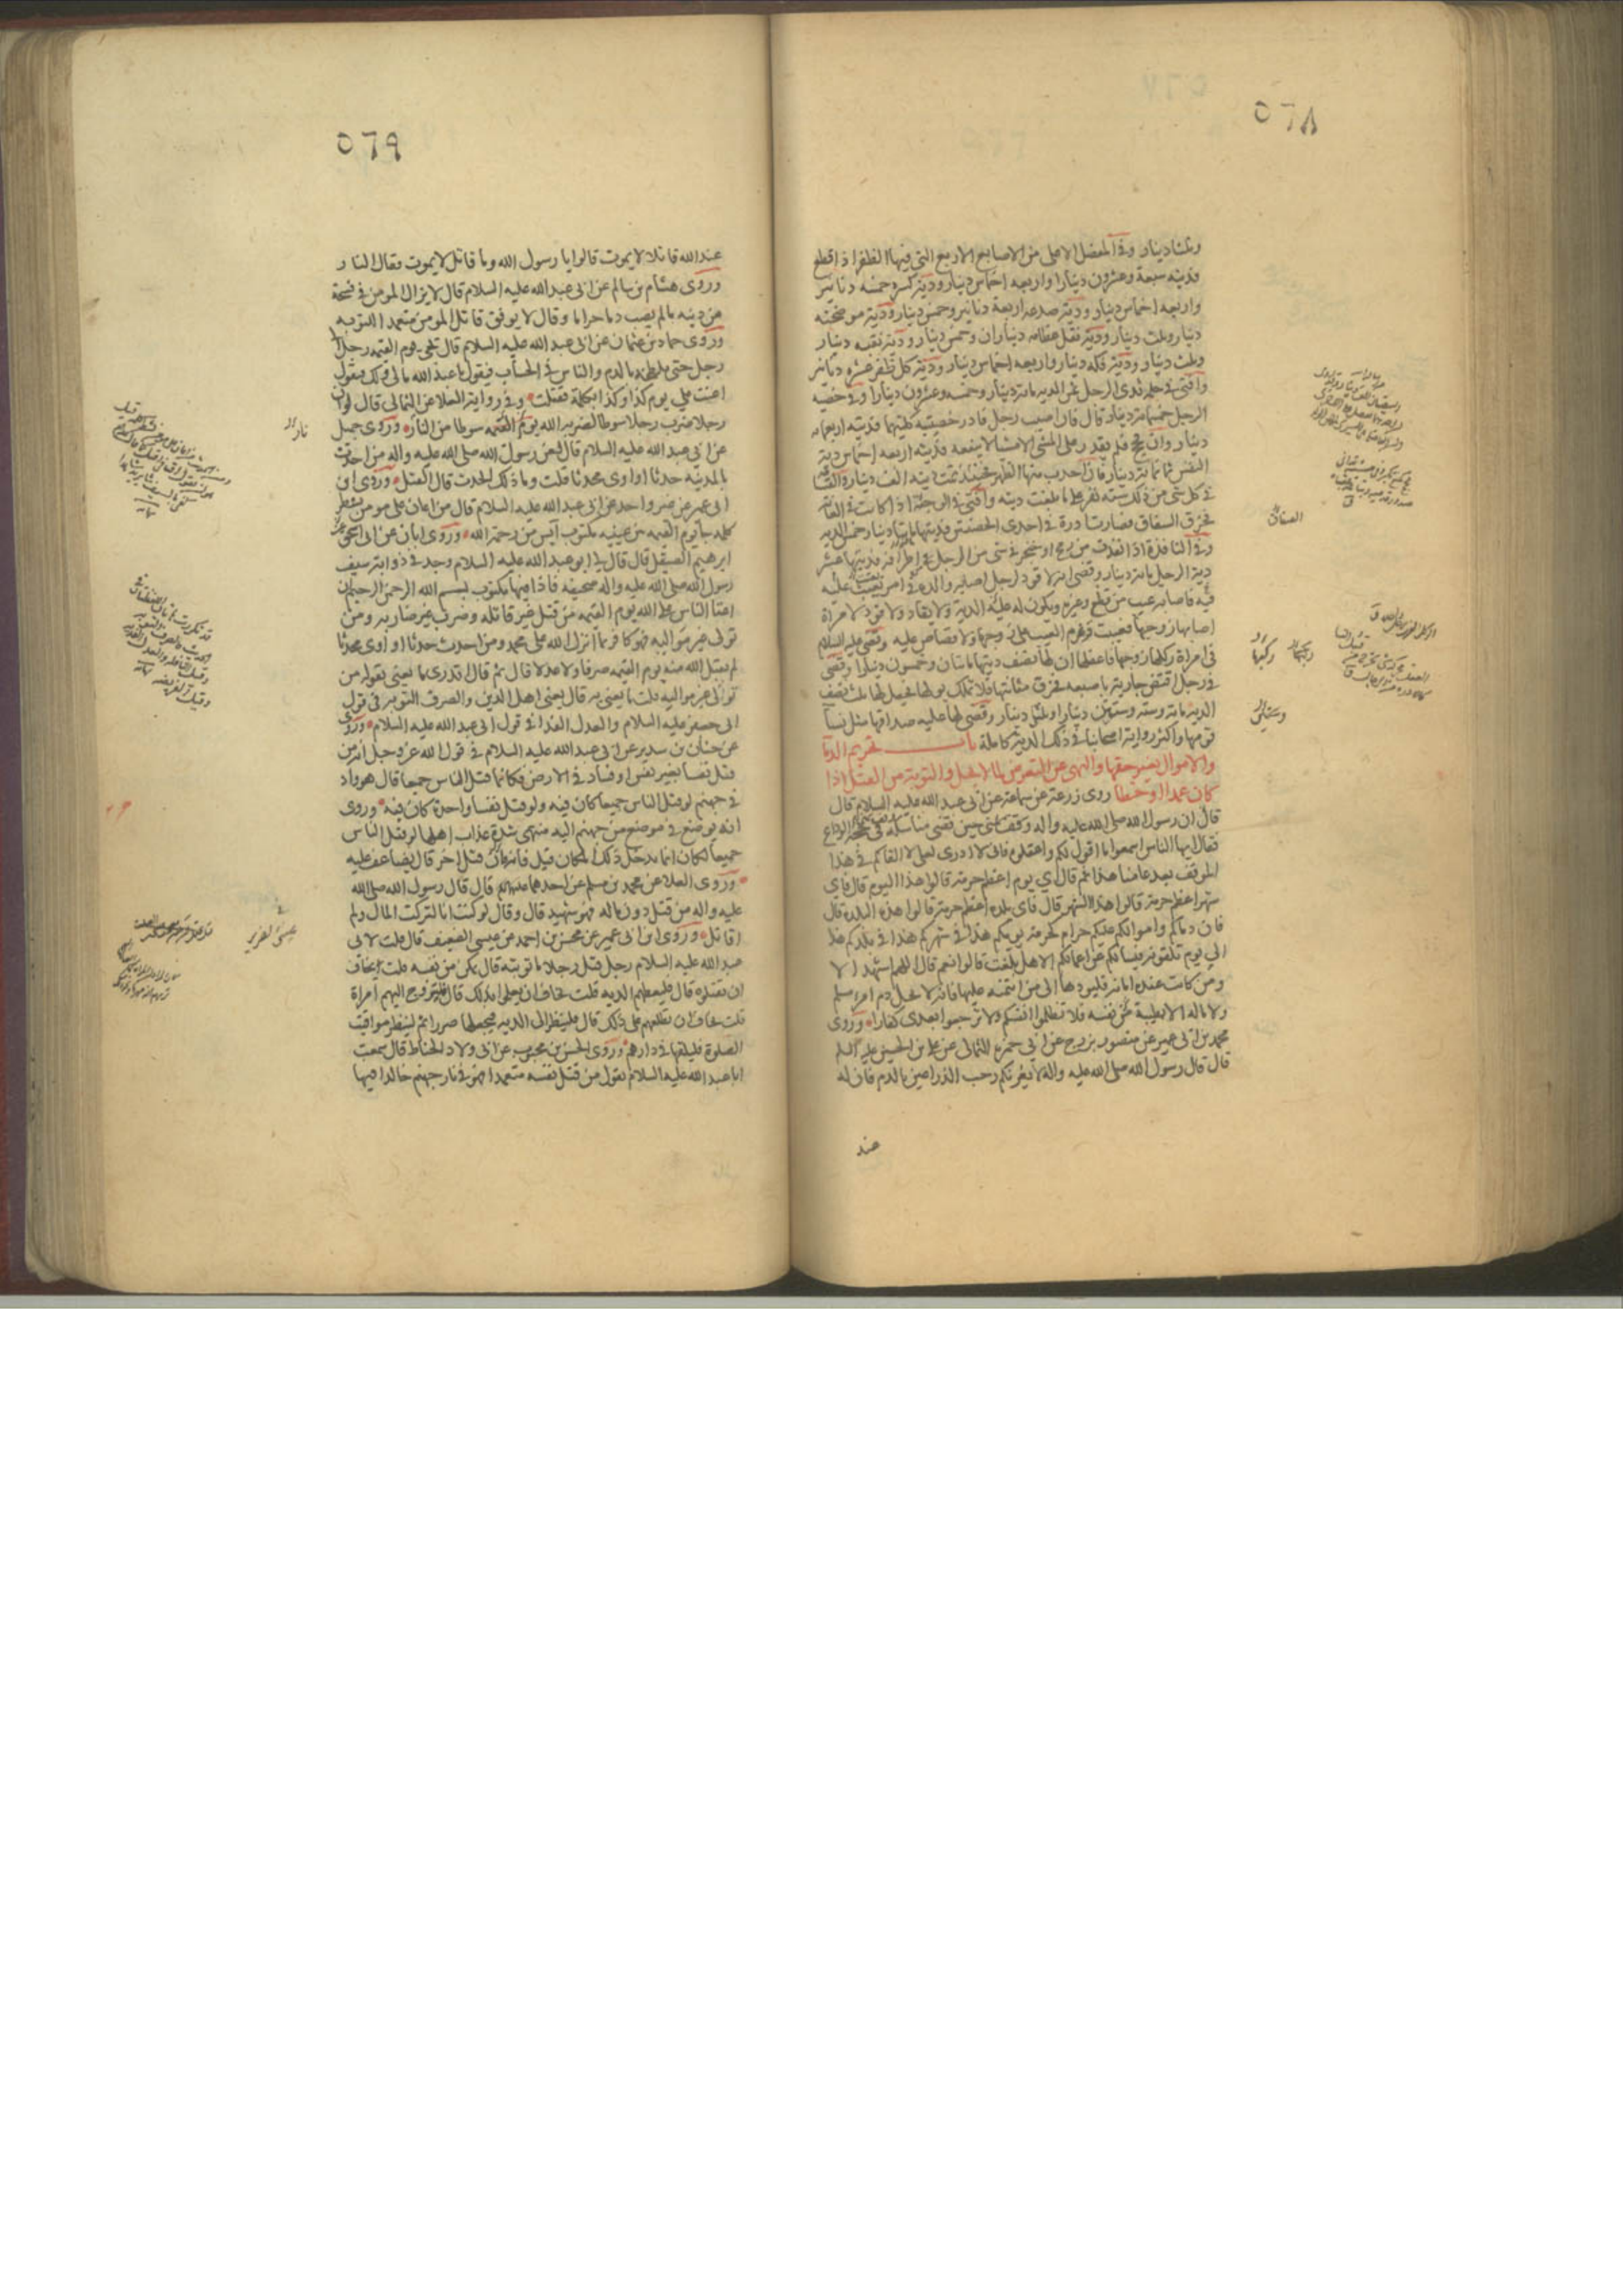 ٥٦٨
وثلثا دينار وفي المفصل الاعلى من الاصابع الاربع التي فيها الظفر اذا قطع
فديته سبعة وعشرون دينارا واربعة اخماس دينار ودية كسره خمسة دنانير
واربعة اخماس دينار ودية صدعه اربعة دنانير وخمس دينار ودية موضحته
دينار وثلث دينار ودية نقل عظامه ديناران وخمس دينار ودية نقبه دينار
وثلث دينار ودية فكه دينار واربعة اخماس دينار ودية كل ظفر عشرة دنانير
وافتى في حلمة ثدي الرجل ثمن الدية مائة دينار وخمسة وعشرون دينارا وفي خصية
الرجل خمسمائة دينار قال فان اصيب رجل فادر خصيتيه كلتيهما فديته اربعمائة
دينار وان فحج فلم يقدر على المشي الا مشيا لا ينفعه فديته اربعة اخماس دية
النفس ثمانمائة دينار فان احدب منها الظهر فحينئذ تمت ديته الف دينار والقسامة
في كل شي من ذلك ستة نفر على ما بلغت ديته وافتى في الوجيئة اذا كانت في العانة
فخرق السفاق فصارت ادرة في احدى الخصيتين فديتها مائتا دينار خمس الدية
وفي النافذة اذا نفذت من رمح او خنجر في شي من الرجل في اطرافه فديتها عشر
دية الرجل مائة دينار وقضى انه لا قود لرجل اصابه والده في امر يعيب عليه
فيه فاصابه عيب من قطع وغيره ويكون له عليه الدية ولا يقاد ولا قود لامراة
اصابها زوجها فعيبت وغرم العيب على زوجها ولا قصاص عليه وقضى عليه السلام
في امراة ركلها زوجها فاعفلها ان لها نصف ديتها مائتان وخمسون دينارا وقضى
في رجل افتض جارية باصبعه فخرق مثانتها فلا تملك بولها فجعل لها ثلث نصف
الدية مائة وستة وستين دينارا وثلثي دينار وقضى لها عليه صداقها مثل نسا
قومها واكثر رواية اصحابنا في ذلك الدية كاملة باب تحريم الدما
والاموال بغير حقها والنهى عن التعرض لما لا يحل والتوبة من القتل اذا
كان عمدا او خطا روى زرعة عن سماعة عن ابي عبد الله عليه السلام قال
قال ان رسول الله صلى الله عليه واله وقف بمنى حين قضى مناسكه في حجة الوداع
فقال ايها الناس اسمعوا ما اقول لكم واعقلوه فاني لا ادري لعلي لا القاكم في هذا
الموقف بعد عامنا هذا ثم قال اي يوم اعظم حرمة قالوا هذا اليوم قال فاي
شهر اعظم حرمة قالوا هذا الشهر قال فاي بلدة اعظم حرمة قالوا هذه البلدة قال
فان دماكم واموالكم عليكم حرام كحرمة يومكم هذا في شهركم هذا في بلدكم هذا
الى يوم تلقونه فيسالكم عن اعمالكم الا هل بلغت قالوا نعم قال اللهم اشهد الا
ومن كانت عنده امانة فليودها الى من ائتمنه عليها فانه لا يحل دم امرء مسلم
ولا ماله الا بطيبة نفسه فلا تظلموا انفسكم ولا ترجعوا بعدي كفارا وروى
محمد بن ابي عمير عن منصور بزرج عن ابي حمزة الثمالى عن على بن الحسين عليه السلم
قال قال رسول الله صلى الله عليه واله لا يغرنكم رحب الذراعين بالدم فان له
عند
الصفاق
٥٦٩
عند الله قاتلا لا يموت قالوا يا رسول الله وما قاتل لا يموت فقال النار
وروى هشام بن سالم عن ابي عبد الله عليه السلام قال لا يزال المومن في فسحة
من دينه مالم يصب دما حراما وقال لا يوفق قاتل المومن متعمدا للتوبه
وروى حماد بن عثمان عن ابي عبد الله عليه السلام قال يجي يوم القيمه رجل الى
رجل حتى يلطخه بالدم والناس في الحساب فيقول يا عبد الله مالي ولك فيقول
اعنت علي يوم كذا وكذا بكلمة فقتلت وفي رواية العلا عن الثمالى قال لو ان
رجلا ضرب رجلا سوطا لضربه الله يوم القيمه سوطا من النار وروى جميل
عن ابي عبد الله عليه السلام قال لعن رسول الله صلى الله عليه واله من احدث
بالمدينه حدثا او اوى محدثا قلت وما ذلك الحدث قال القتل وروى ابن
ابي عمير عن غير واحد عن ابي عبد الله عليه السلام قال من اعان على مومن بشطر
كلمه جا يوم القيمه بين عينيه مكتوب آيس من رحمة الله وروى ابان عن ابي اسحق
ابرهيم الصيقل قال قال لي ابو عبد الله عليه السلام وجد في ذوابة سيف
رسول الله صلى الله عليه واله صحيفه فاذا فيها مكتوب بسم الله الرحمن الرحيم ان
اعتا الناس على الله يوم القيمه من قتل غير قاتله وضرب غير ضاربه ومن
تولى غير مواليه فهو كافر بما انزل الله على محمد ومن احدث حدثا او اوى محدثا
لم يقبل الله منه يوم القيمه صرفا ولا عدلا قال ثم قال اتدري ما يعنى بقوله من
تولى غير مواليه قلت ما يعنى به قال يعنى اهل الدين والصرف التوبه في قول
ابي جعفر عليه السلام والعدل الفدا في قول ابي عبد الله عليه السلام وروى
عن حنان بن سدير عن ابي عبد الله عليه السلام في قول الله عز وجل انه من
قتل نفسا بغير نفس او فساد في الارض فكانما قتل الناس جميعا قال هو واد
في جهنم لو قتل الناس جميعا كان فيه ولو قتل نفسا واحدة كان فيه وروى
انه يوضع في موضع من جهنم اليه منتهى شدة عذاب اهلها لو قتل الناس
جميعا لكان انما يدخل ذلك المكان قيل فانه قتل اخر قال يضاعف عليه
وروى العلا عن محمد بن مسلم عن احدهما عليهما السلم قال قال رسول الله صلى الله
عليه واله من قتل دون ماله فهو شهيد قال وقال لو كنت انا لتركت المال ولم
اقاتل وروى ابن ابي عمير عن محسن بن احمد عن عيسى الضعيف قال قلت لابى
عبد الله عليه السلام رجل قتل رجلا ما توبته قال يمكن من نفسه قلت يخاف
ان يقتلوه قال فليعطهم الديه قلت يخاف ان يعلموا بذلك قال فليتزوج اليهم امراة
قلت يخاف ان تطلعهم على ذلك قال فلينظر الى الديه فيجعلها صررا ثم لينظر مواقيت
الصلوة فليلقها في دارهم وروى الحسن بن محبوب عن ابي ولاد الحناط قال سمعت
ابا عبد الله عليه السلام يقول من قتل نفسه متعمدا فهو في نار جهنم خالدا فيها